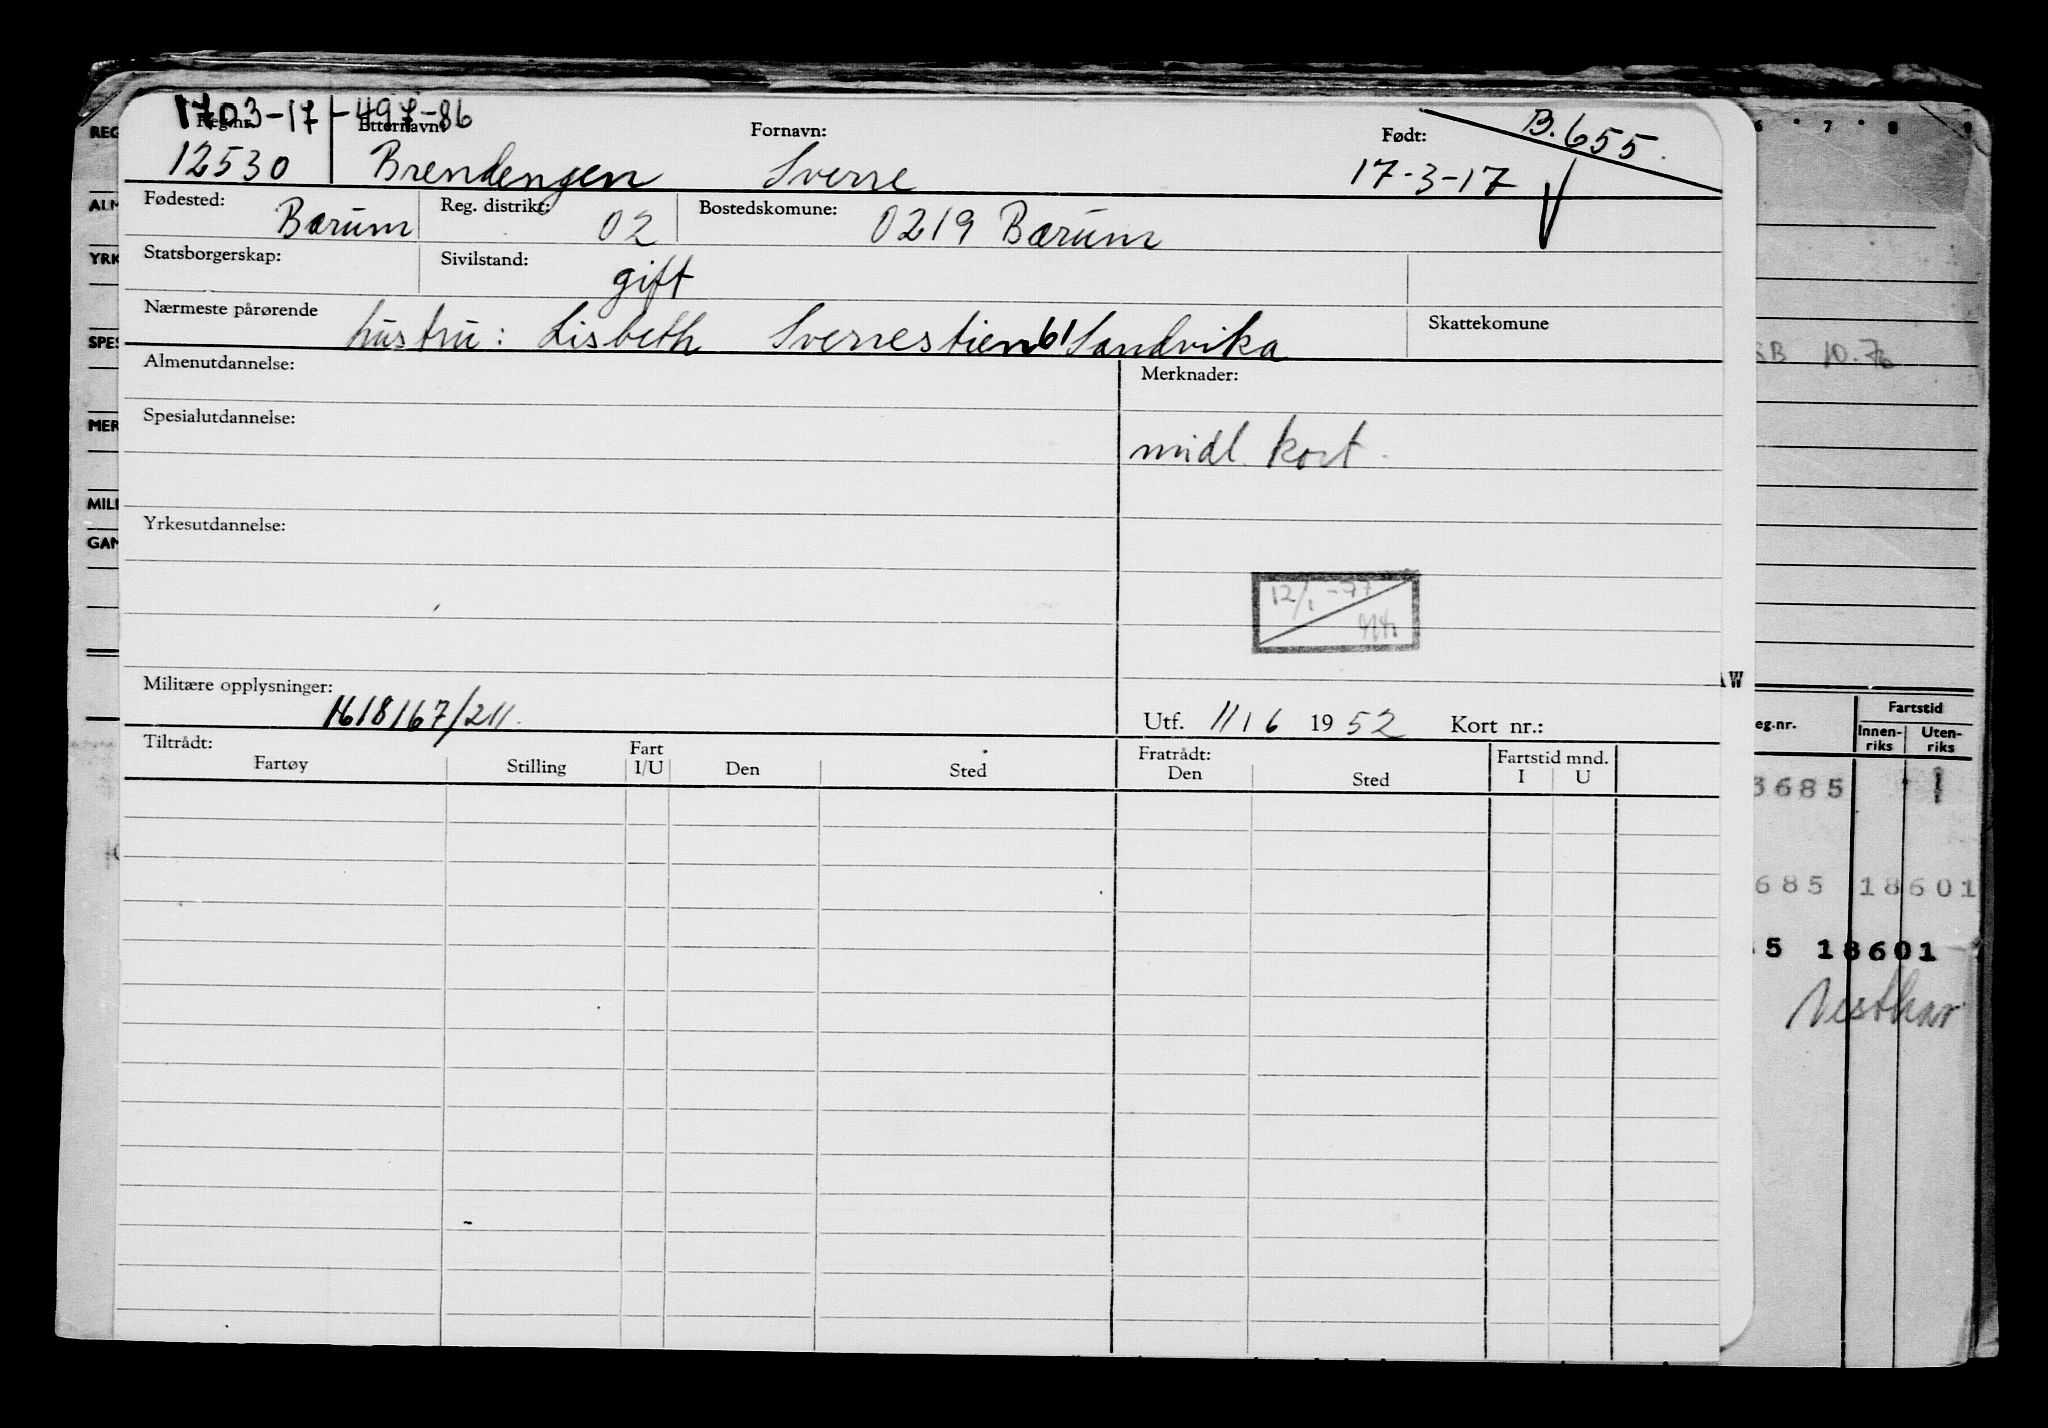 1703-17-497-86
B.655.
Reg.nr. Etternavn: Fornavn: Født:
12530 Brendengen Sverre 17-3-17
Fødested: Bærum Reg. distrikt: 02 Bostedskomune: 0219 Bærum
Statsborgerskap: Sivilstand: gift
Nærmeste pårørende hustru: Lisbeth Sverrestien 61 Sandvika Skattekomune
Almenutdannelse: Merknader:
Spesialutdannelse: midl. kort.
Yrkesutdannelse:
12/1-77
Militære opplysninger: 1618167/211.
Utf. 11/6 1952 Kort nr.:
Tiltrådt: Fratrådt:
Fartøy Stilling Fart I/U Den Sted Den Sted Fartstid mnd. I U
REG
ALM
YRK
SPES
MER
MILI
GAN
6 7 8 9
10.76
AW
eg.nr. Fartstid
Innen-riks Uten-riks
3685 1
685 18601
5 18601
Vesthav